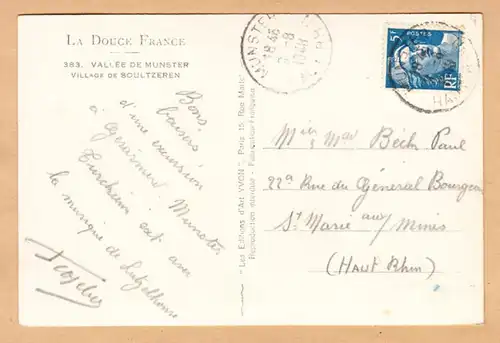 LA DOUCE FRANCE
383. VALLÉE DE MUNSTER
VILLAGE DE SOULTZEREN
Bons
baisers
d'une excursion
à Gérardmer. Munster
Turckheim est avec
la musique de Lutzelhouse
"Les Editions d'Art YVON" - Paris, 15, Rue Martel
Reproduction interdite - Fabrication Française
MUNSTER
18 45
1948
POSTES
5F
RF
Mr et Mme Bech Paul
22a Rue du Général Bourgeois
Ste Marie aux Mines
(Haut Rhin)